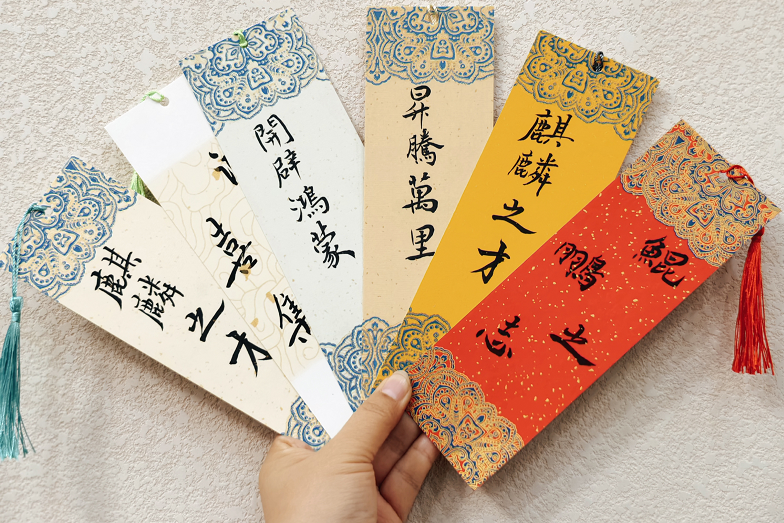 麒麟之才
喜
開辟鴻蒙
昇騰萬里
麒麟之才
鯤鵬之志